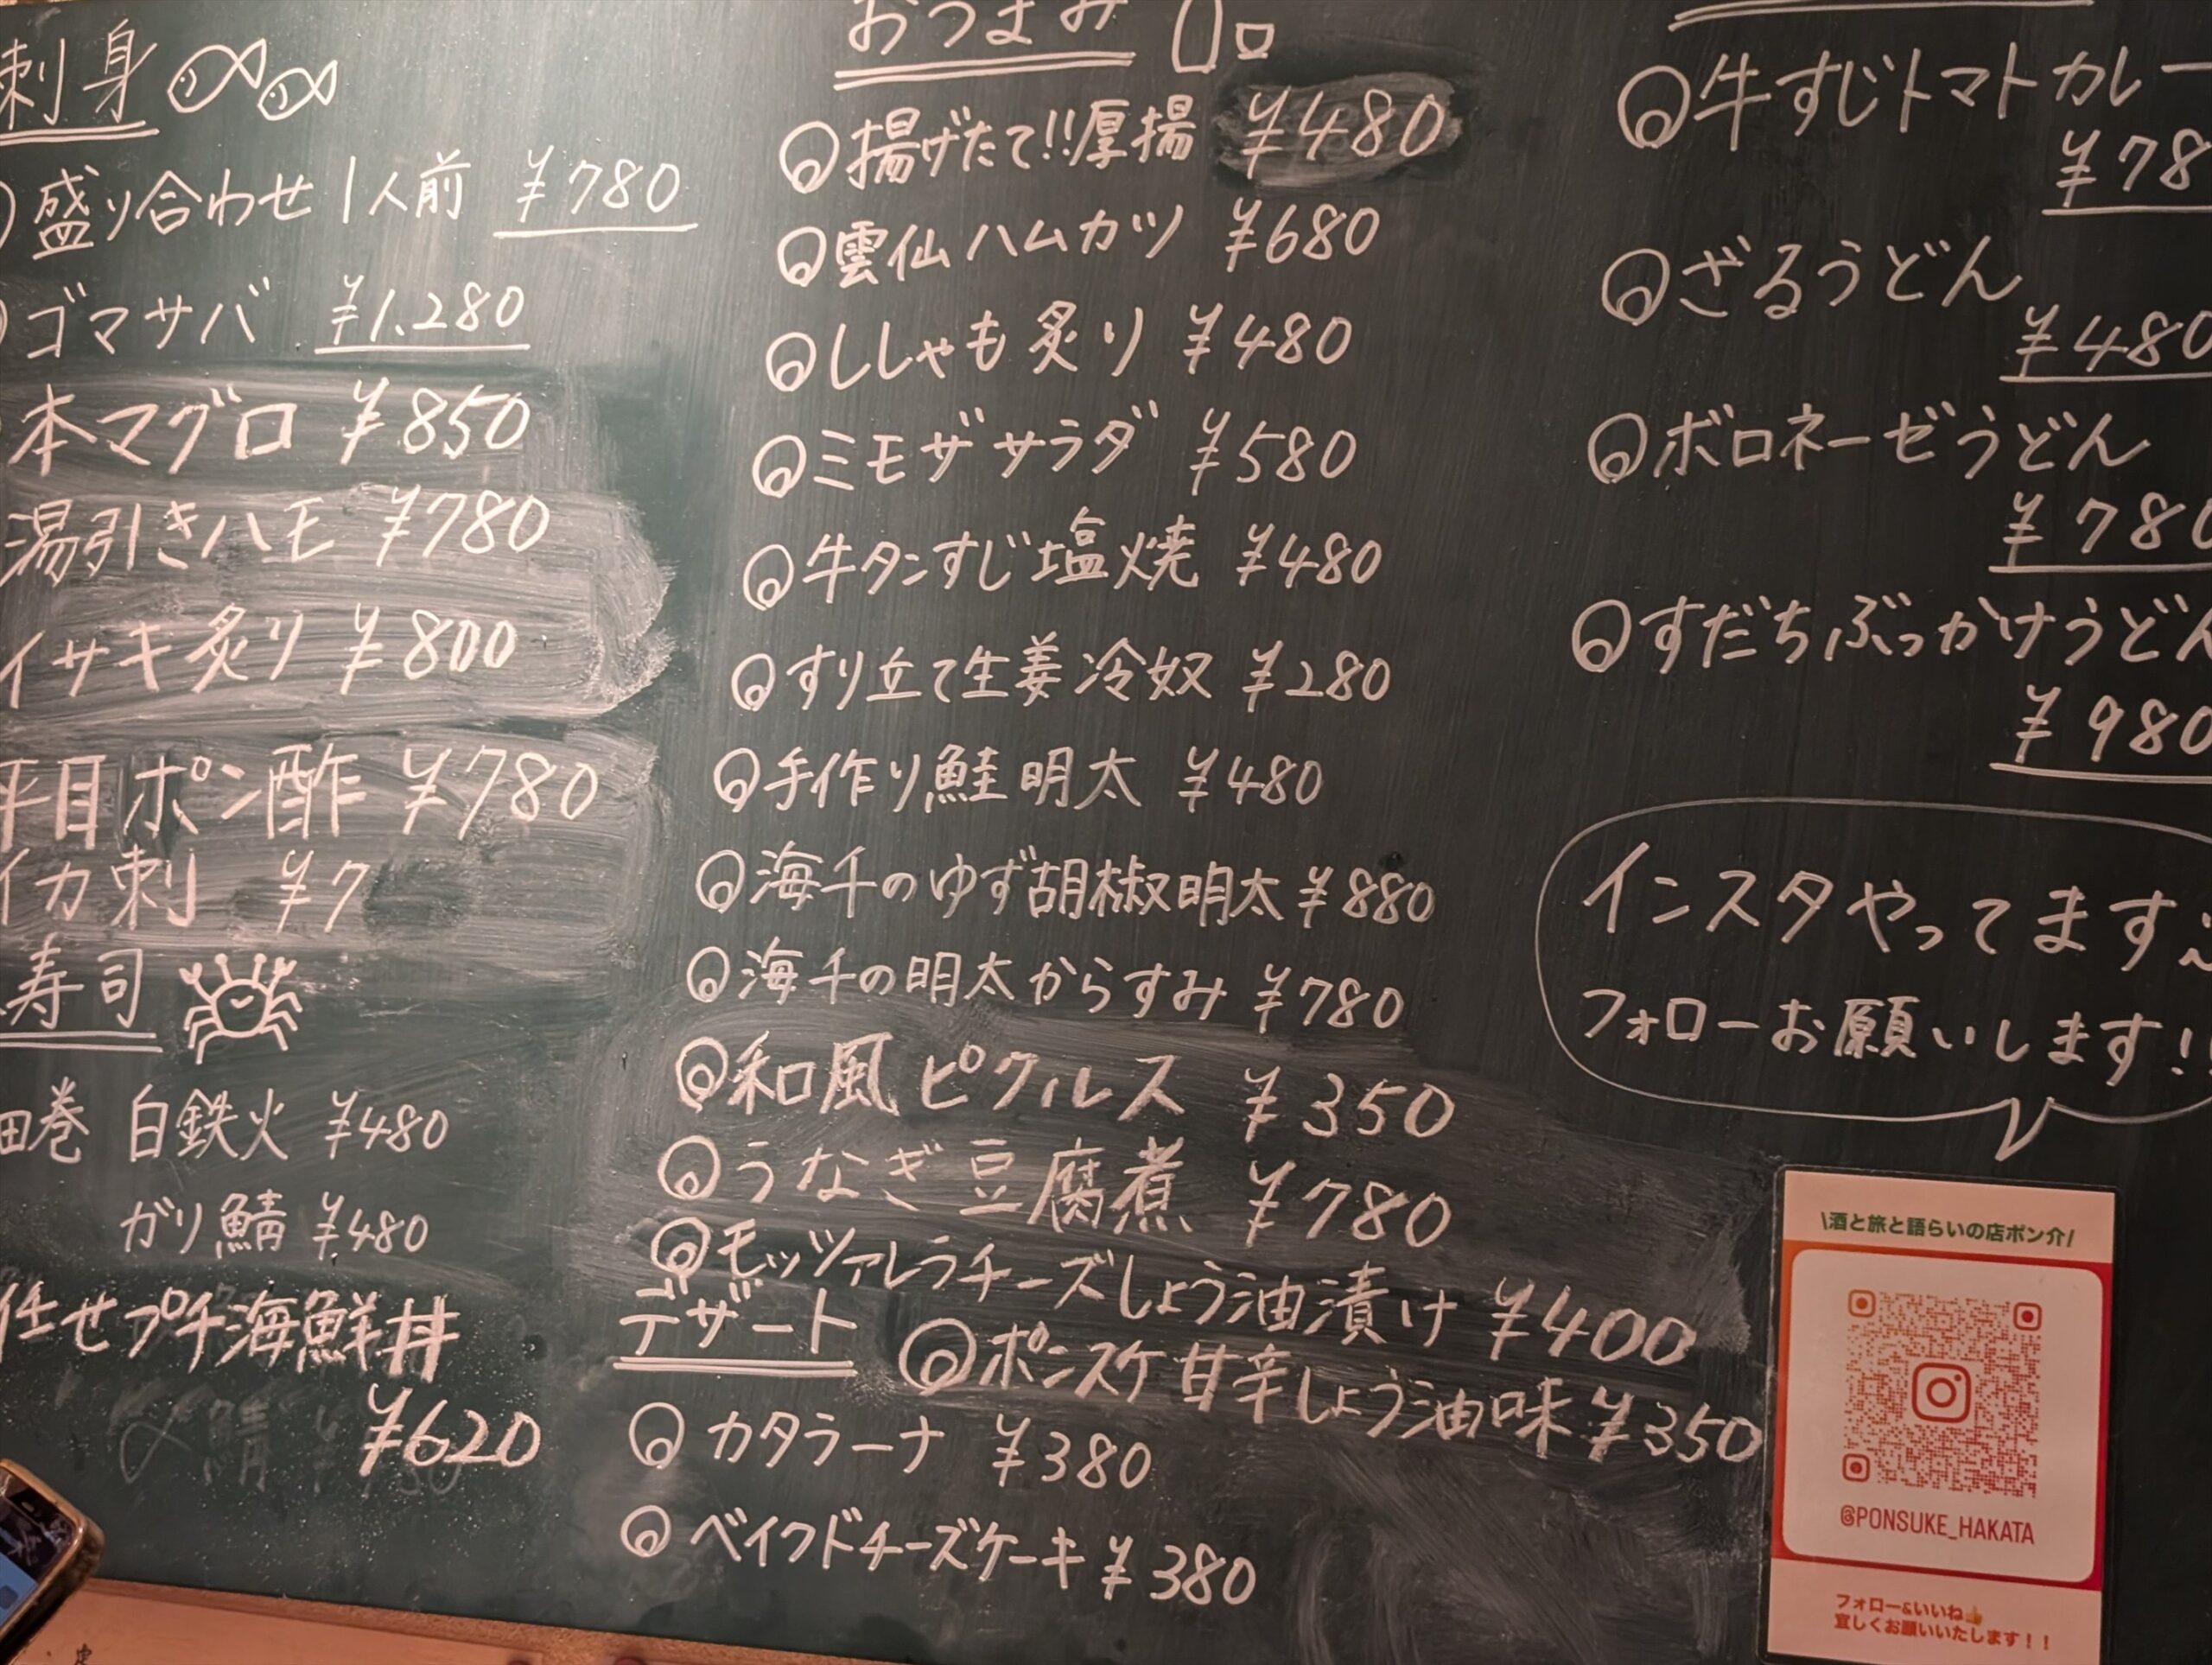 刺身
盛り合わせ1人前 ¥780
ゴマサバ ¥1.280
本マグロ ¥850
湯引きハモ ¥780
イサキ炙り ¥800
平目ポン酢 ¥780
イカ刺 ¥7
寿司
細巻 白鉄火 ¥480
ガリ鯖 ¥480
任せプチ海鮮丼
¥620
おつまみ
揚げたて!!厚揚 ¥480
雲仙ハムカツ ¥680
ししゃも炙り ¥480
ミモザサラダ ¥580
牛タンすじ塩焼 ¥480
すり立て生姜冷奴 ¥280
手作り鮭明太 ¥480
海千のゆず胡椒明太 ¥880
海千の明太からすみ ¥780
和風ピクルス ¥350
うなぎ豆腐煮 ¥780
モッツァレラチーズしょう油漬け ¥400
ポンスケ甘辛しょう油味 ¥350
デザート
カタラーナ ¥380
ベイクドチーズケーキ ¥380
牛すじトマトカレー
¥78
ざるうどん
¥480
ボロネーゼうどん
¥780
すだちぶっかけうどん
¥980
インスタやってます
フォローお願いします!!
\酒と旅と語らいの店ポン介/
@PONSUKE_HAKATA
フォロー&いいね👍
宜しくお願いいたします！！